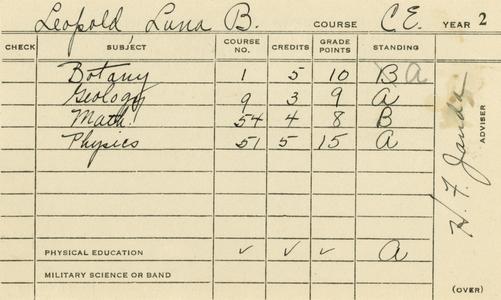 Leopold Luna B. COURSE C.E. YEAR 2
CHECK SUBJECT COURSE NO. CREDITS GRADE POINTS STANDING
Botany 1 5 10 B A
Geology 9 3 9 A
Math. 54 4 8 B
Physics 51 5 15 A
PHYSICAL EDUCATION ✓ ✓ ✓ A
MILITARY SCIENCE OR BAND
H. F. Janda
ADVISER
(OVER)